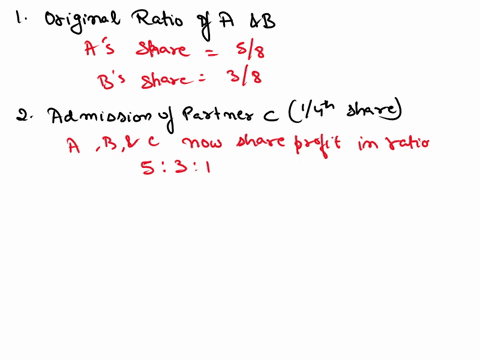 1. Original Ratio of A &B
A's share = 5/8
B's share = 3/8
2. Admission of Partner C (1/4th share)
A, B, & C now share profit in ratio
5 : 3 : 1